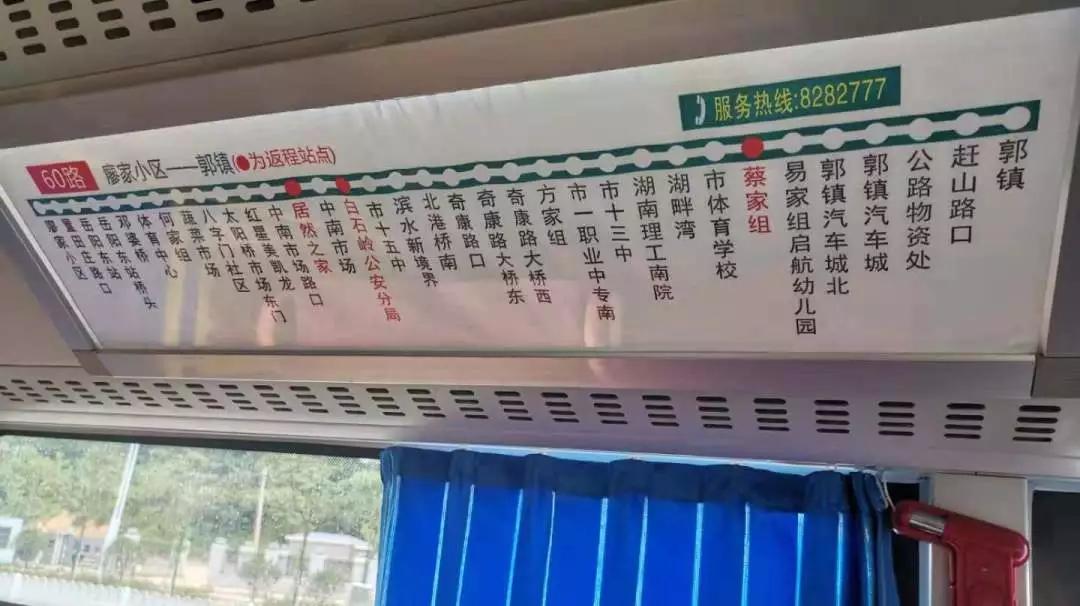 服务热线:8282777
60路 廖家小区——郭镇(●为返程站点)
廖家小区
置田庄路口
岳阳东站
岳阳东站路口
邓婆桥桥头
体育中心
何家组
蔬菜市场
八字门社区
太阳桥市场东门
红星美凯龙
中南市场路口
居然之家
中南市场
白石岭公安分局
市十五中
滨水新境界
北港桥南
奇康路口
奇康路大桥东
奇康路大桥西
方家组
市一职业中专南
市十三中
湖南理工南院
湖畔湾
市体育学校
蔡家组
易家组启航幼儿园
郭镇汽车城北
郭镇汽车城
公路物资处
赶山路口
郭镇